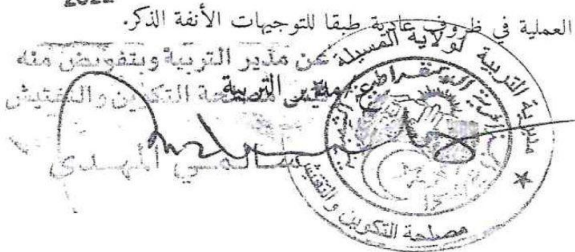 2022
العملية في ظروف عادية طبقا للتوجيهات الأنفة الذكر.
عن مدير التربية وبتفويض منه
مدير التربية
مصلحة التكوين والتفتيش
المهدي
مديرية التربية لولاية المسيلة
مصلحة التكوين والتفتيش